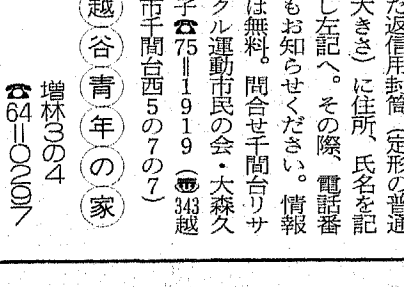 た返信用封筒（定形の普通
大きさ）に住所、氏名を記
し左記へ。その際、電話番
もお知らせください。情報
は無料。問合せ千間台リサ
クル運動市民の会・大森久
子☎75＝1919（〠343越
市千間台西5の7の7）
越谷青年の家
増林3の4
☎64＝0297